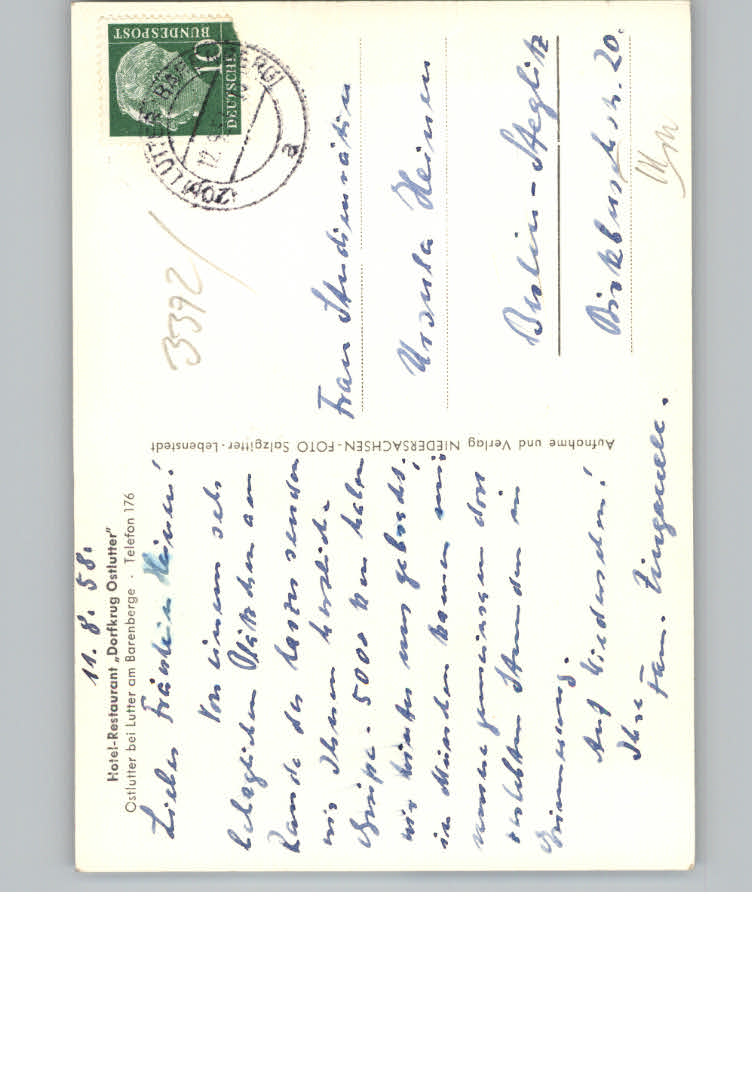 11. 8. 58.
Hotel-Restaurant „Dorfkrug Ostlutter"
Ostlutter bei Lutter am Barenberge · Telefon 176
Liebes Fräulein Heinen!
Von einem sehr
behaglichen Plätzchen am
Rande des Harzes senden
wir Ihnen herzliche
Grüße. 5000 km haben
wir hinter uns gebracht,
in München kamen mir
unsere gemeinsam dort
verlebten Stunden in
Erinnerung.
Auf Wiedersehn!
Ihre
Fam.
Aufnahme und Verlag NIEDERSACHSEN-FOTO Salzgitter-Lebenstedt
DEUTSCHE
BUNDESPOST
10
(20b) LUTTER
a
3392
Frau Studienrätin
Ursula Heinen
Berlin-Steglitz
Birkbuschstr. 20.